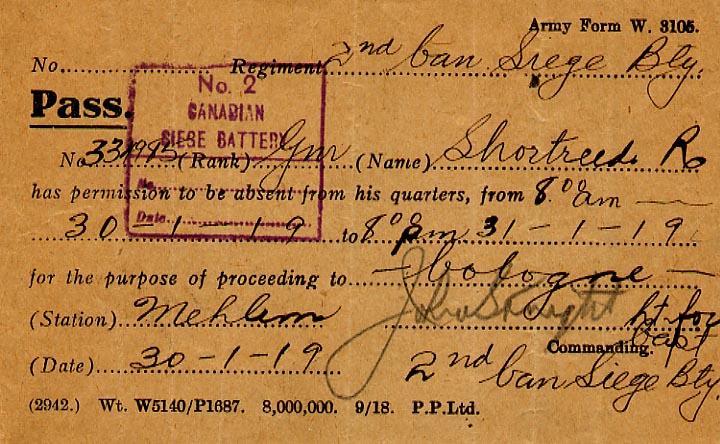 Army Form W. 3105.
No. Regiment 2nd Can Siege Bty.
Pass.
No. 2
CANADIAN
SIEGE BATTERY
No.
Date
No. (Rank) Gnr (Name) Shortreed R
has permission to be absent from his quarters, from 8.00 am —
30-1-19 to 8.00 pm 31-1-19
for the purpose of proceeding to — Cologne —
(Station) Mehlem
(Date) 30-1-19
Lt for
Commanding.
2nd Can Siege Bty
(2942.) Wt. W5140/P1687. 8,000,000. 9/18. P.P.Ltd.